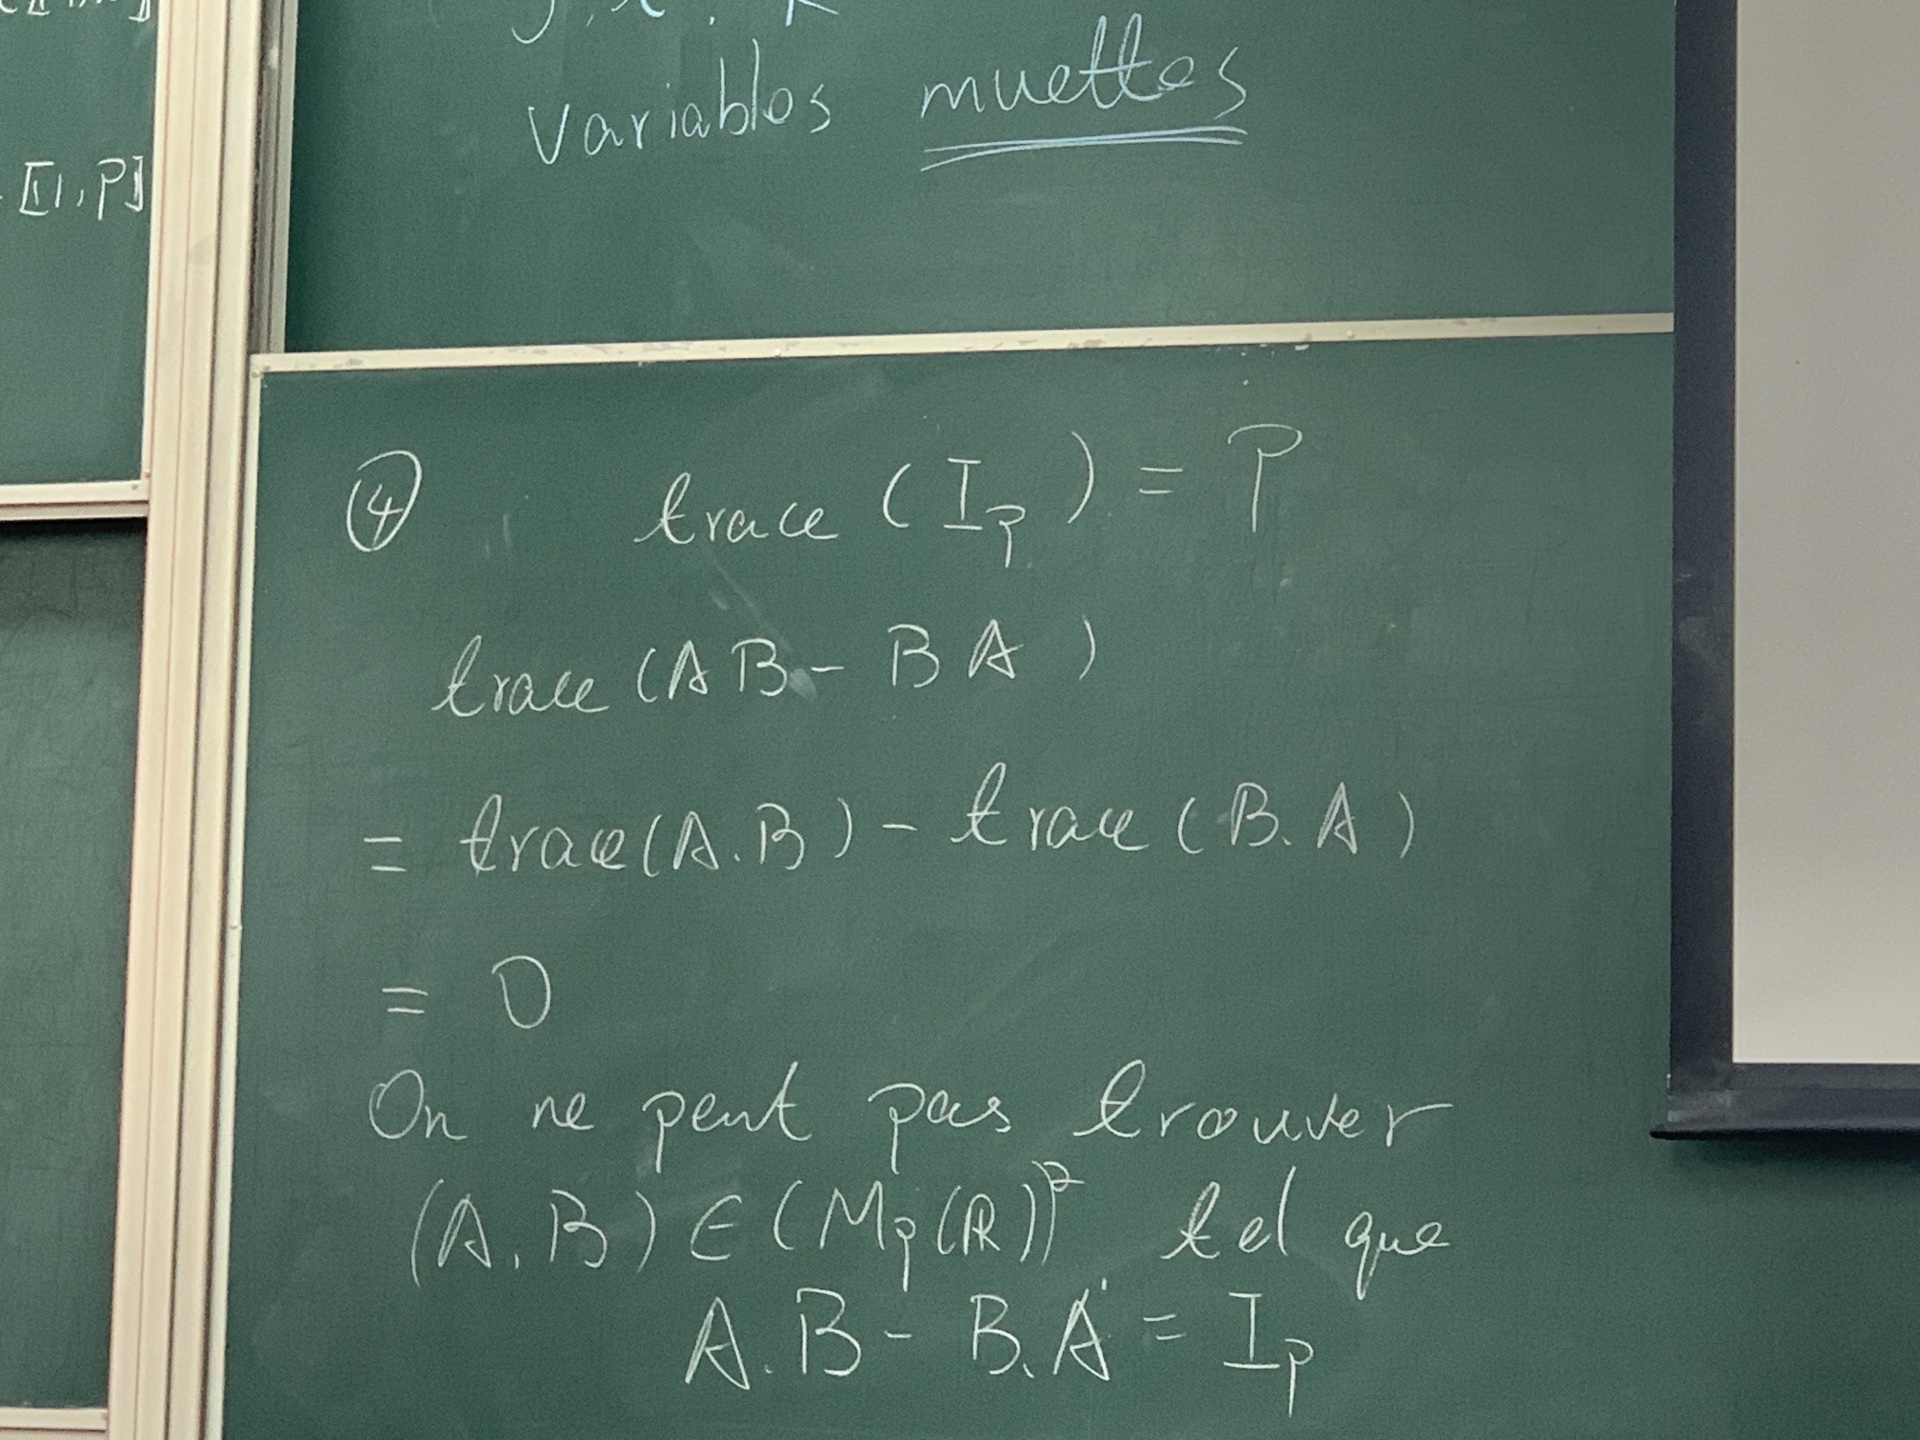 [1, P]
variables muettes
④ trace (I_p) = P
trace (AB - BA)
= trace(A.B) - trace (B.A)
= 0
On ne peut pas trouver
(A, B) ∈ (M_p(ℝ))² tel que
A.B - B.A = I_p